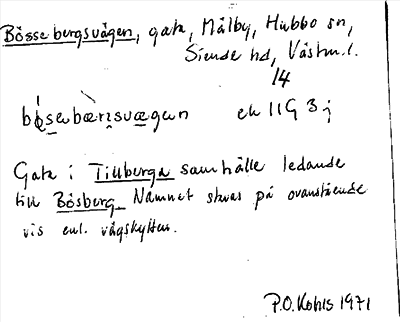 Bössebergsvägen, gata, Målby, Hubbo sn,
Siende hd, Västm.l.
14
ek 11G 3j
Gata i Tillberga samhälle ledande
till Bösberg. Namnet skrivs på ovanstående
vis enl. vägskylten.
P.O. Kohls 1971